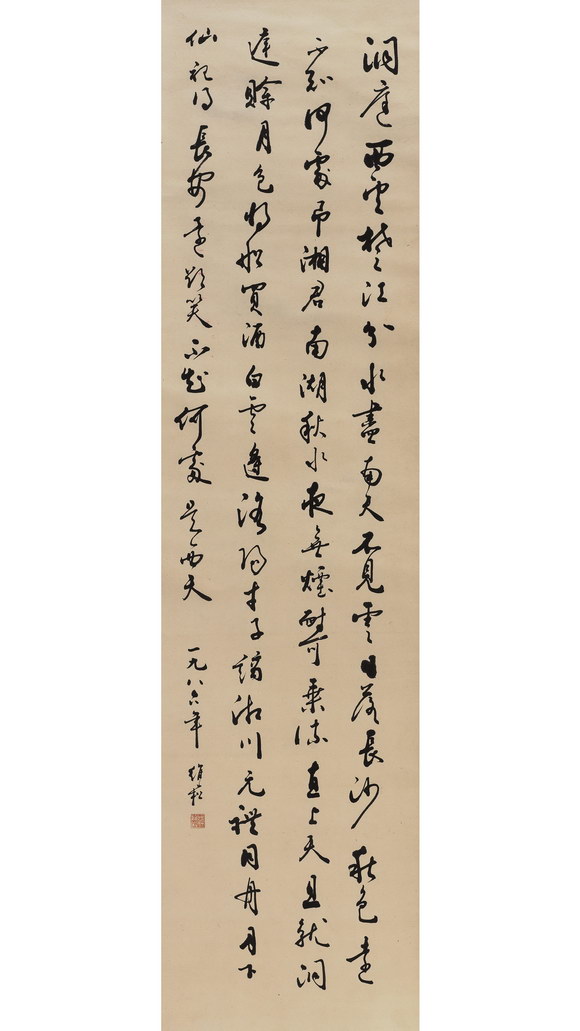 洞庭西望楚江分水盡南天不見雲日落長沙秋色遠
不知何處吊湘君南湖秋水夜無煙耐可乘流直上天且就洞
庭賒月色將船買酒白雲邊洛陽才子謫湘川元禮同舟月下
仙記得長安還欲笑不知何處是西天
一九八六年